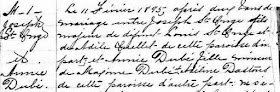 M-1
Joseph
St Onge
et
Annie
Dubé
Le 11 Février 1895, après
mariage entre Joseph St Onge fils
majeur de défunt Louis St Onge et
de Adèle Ouellet de cette paroisse d'une
part, et Annie Dubé fille mineure
de Dubé et
de cette paroisse d'autre part